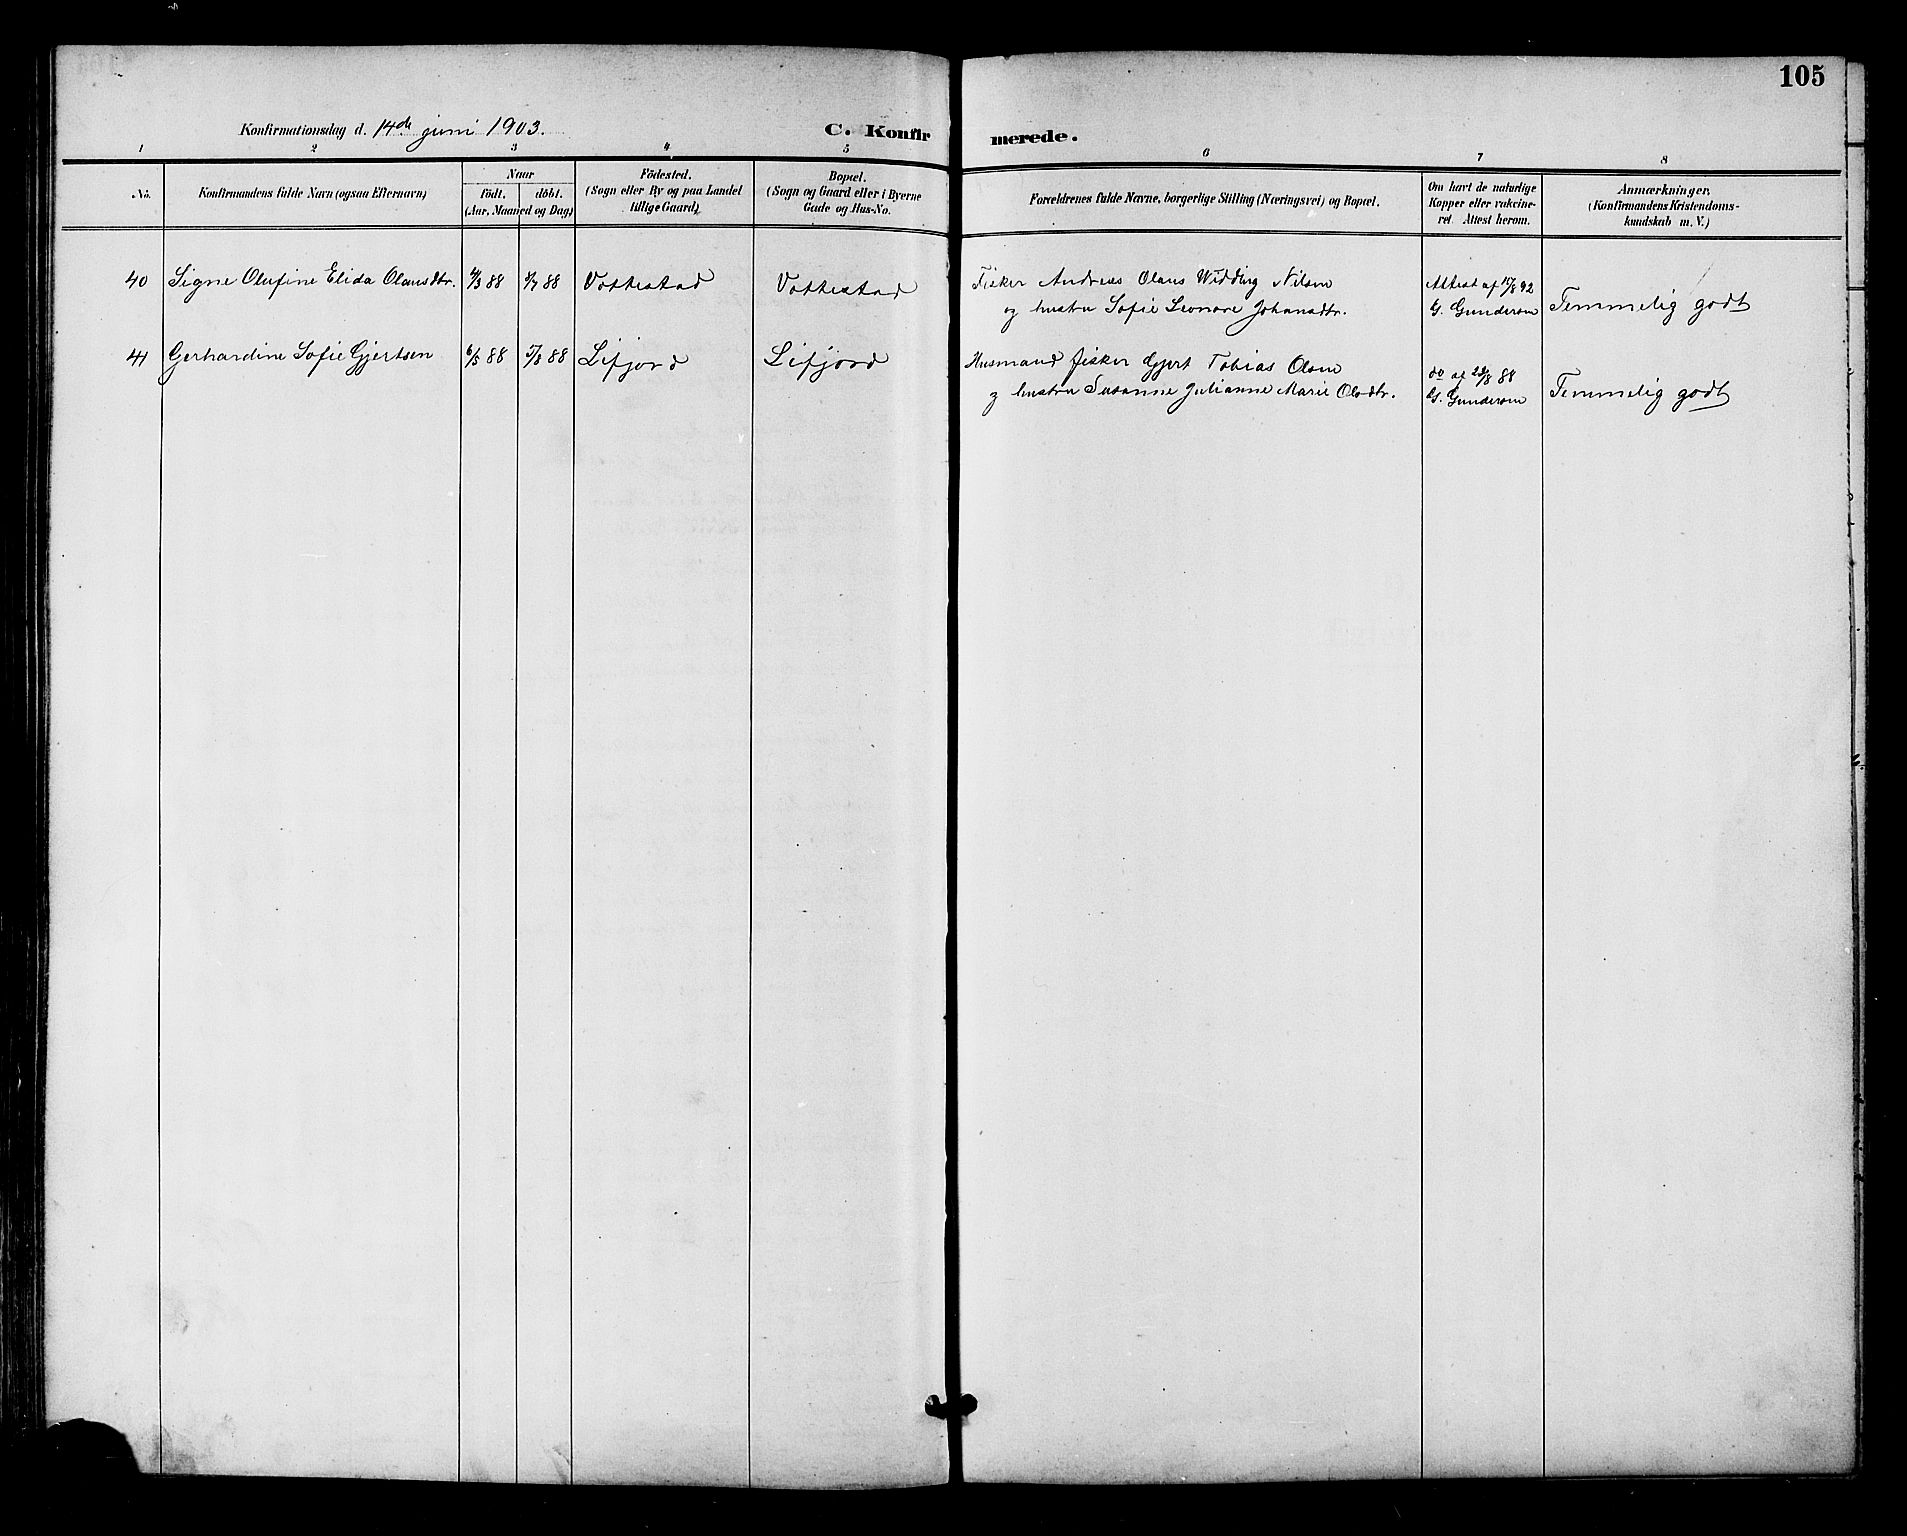 105
Konfirmationsdag d. 14de juni 1903.
C. Konfirmerede.
1 2 3 4 5 6 7 8
No.
Konfirmandens fulde Navn (ogsaa Efternavn)
Naar
födt. döbt.
(Aar, Maaned og Dag)
Födested.
(Sogn eller By og paa Landet
tillige Gaard)
Bopæl.
(Sogn og Gaard eller i Byerne
Gade og Hus-No.
Forældrenes fulde Navne, borgerlige Stilling (Næringsvei) og Bopæl.
Om havt de naturlige
Kopper eller vakcine-
ret. Attest herom.
Anmærkninger,
(Konfirmandens Kristendoms-
kundskab m. V.)
40 Signe Olufine Elida Olausdtr. 4/3 88 1/7 88 Vottestad Vottestad
Fisker Andreas Olaus Widding Nilsen
og hustru Sofie Leonore Johansdtr.
Attest af 15/8 92
G. Gundersen
Temmelig godt
41 Gerhardine Sofie Gjertsen 6/5 88 5/8 88 Lifjord Lifjord
Husmand fisker Gjert Tobias Olsen
og hustru Susanne Julianne Marie Olsdtr.
do af 23/8 88
G. Gundersen
Temmelig godt